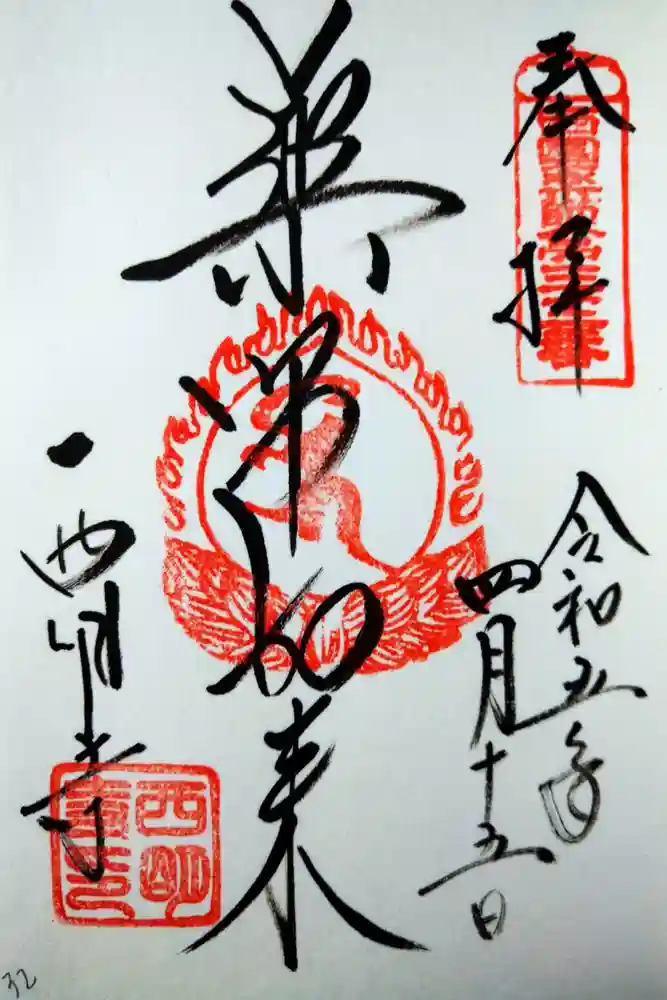 奉拝
令和五年
四月十五日
薬師如来
西明寺
西明
寺印
32